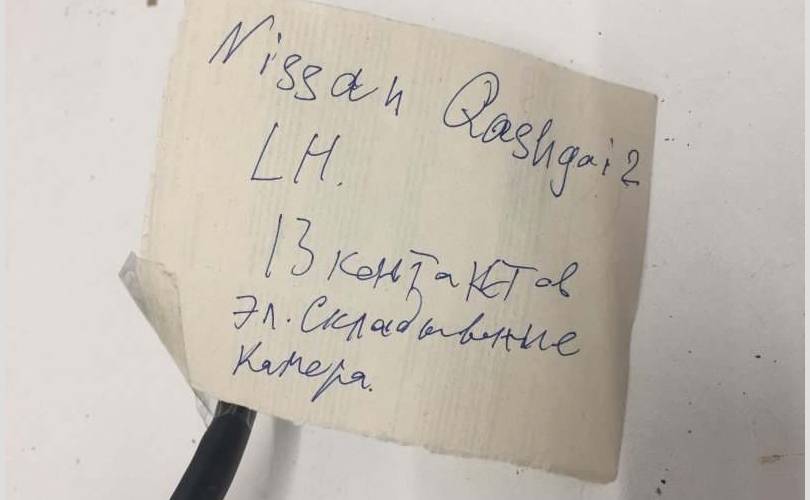 Nissan Qashqai 2
LH.
13 контактов
Эл. Складывание
Камера.